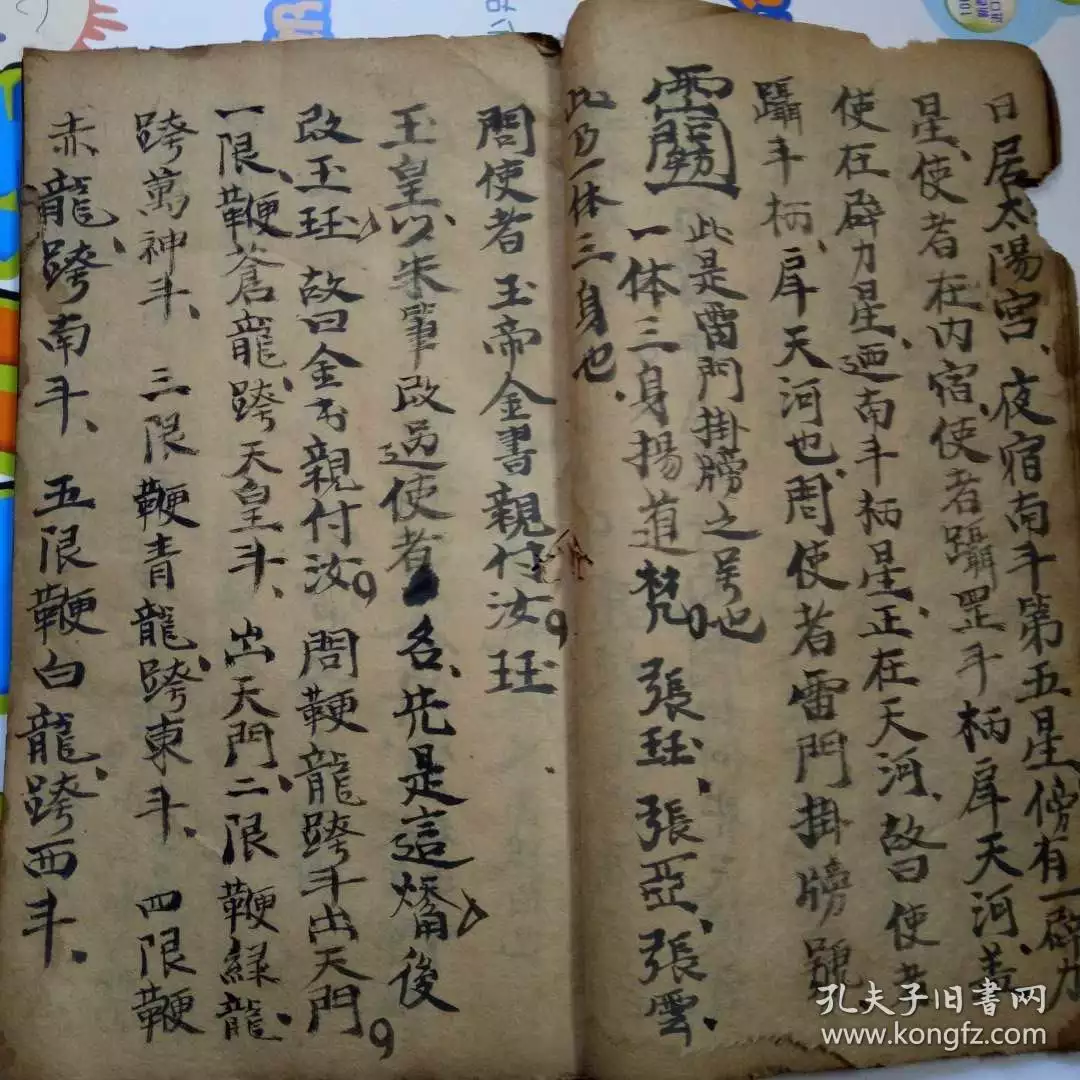 日居太陽宮、夜宿南斗第五星傍有一霹力
星、使者在内宿、使者躡罡斗柄㦿天河、盖
使在霹力星、迊南斗柄星、正在天河、故曰使者
躡斗柄、㦿天河也、問使者雷門掛牓號
此是雷門掛牓之号也
一体三身揚道梵 張珏、張亞、張雲、
此乃一体三身也、
問使者玉帝金書親付汝珏
玉皇以朱筆改過使者名、先是這 後
改玉珏 故曰金書親付汝 問鞭龍跨斗出天門
一限、鞭蒼龍、跨天皇斗、出天門、二限鞭緑龍、
跨萬神斗、三限鞭青龍、跨東斗、四限鞭
赤龍、跨南斗、五限鞭白龍、跨西斗、
孔夫子旧书网
www.kongfz.com